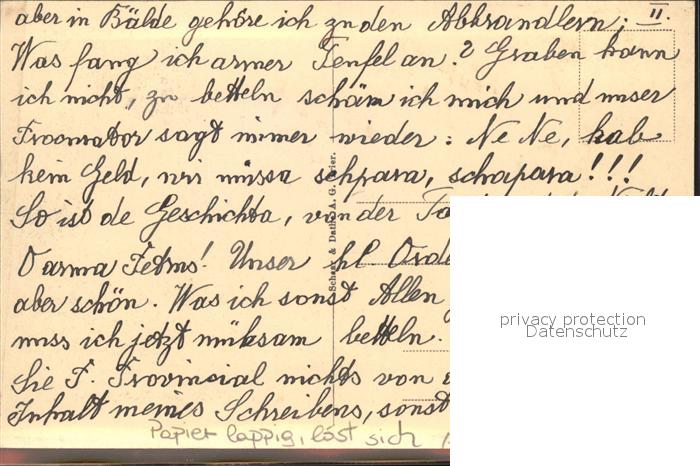 aber in Bälde gehöre ich zu den Abbrandlern; II.
Was fang ich armer Teufel an? Graben kann
ich nicht, zu betteln schäm ich mich und unser
sagt immer wieder: Ne Ne, hab
kein Geld, wir müssa schpara, schapara!!!
So ist de Geschichta, von der
O arma Unser hl.
aber schön. Was ich sonst Allen
muss ich jetzt mühsam betteln.
Sie P. Provincial nichts von
Inhalt meines Schreibens, sonst
Papier lappig, löst sich
& Dathe A. G.
privacy protection
Datenschutz